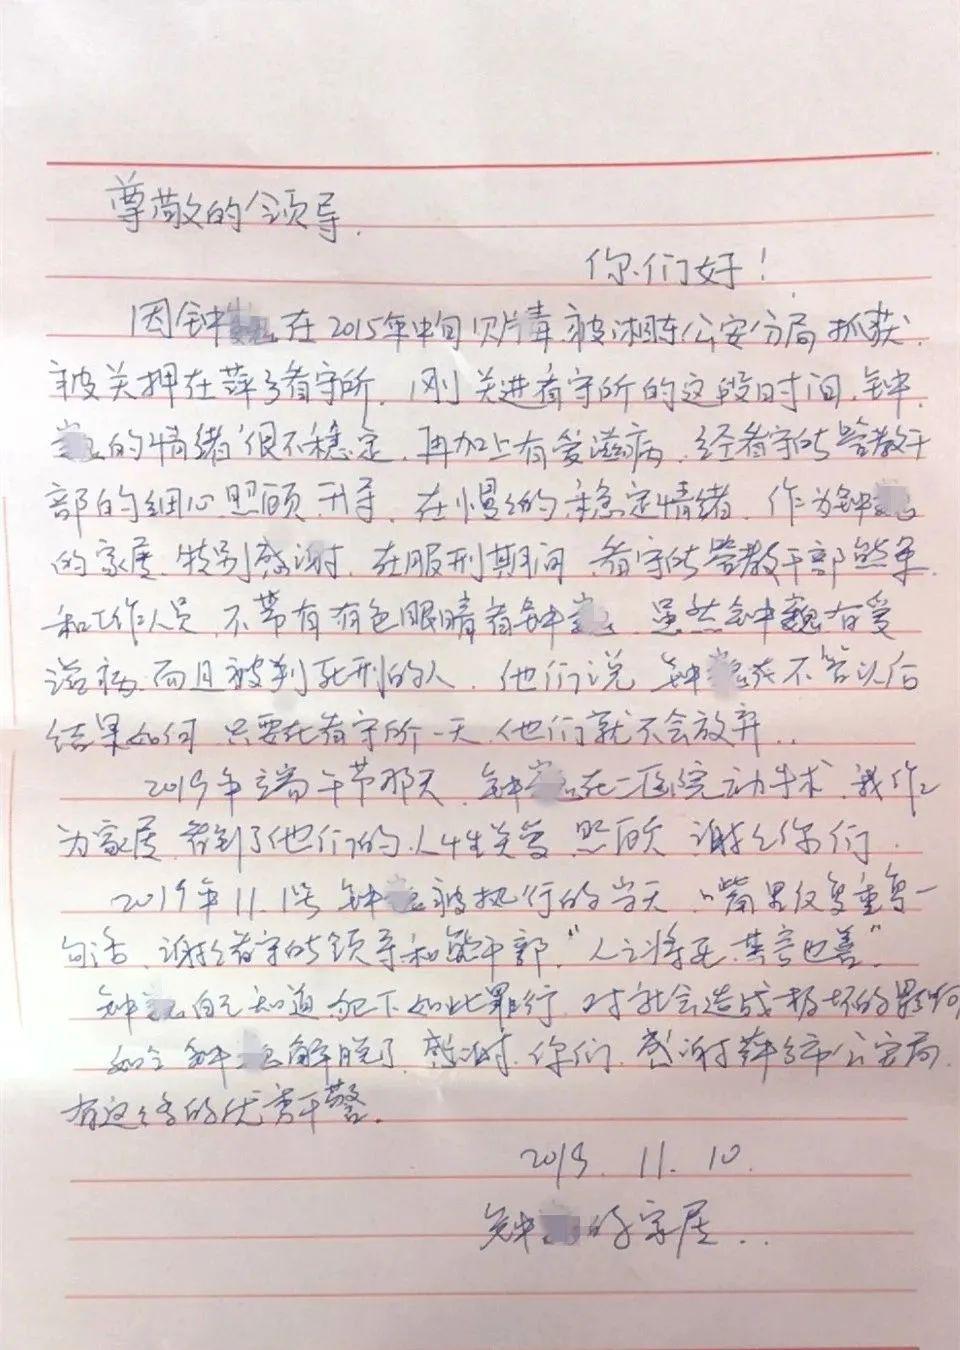 尊敬的领导.
你们好!
因钟 在2015年中旬贩毒.被湘东公安分局抓获.
被关押在萍乡看守所.刚关进看守所的这段时间.钟.
的情绪很不稳定.再加上有爱滋病.经看守所管教干
部的细心照顾开导.在慢慢的稳定情绪.作为钟
的家属.特别感谢.在服刑期间.看守所管教干部
和工作人员.不带有有色眼睛看钟 .虽然钟魏有爱
滋病.而且被判死刑的人.他们说 钟 不管以后
结果如何.只要在看守所一天.他们就不会放弃..
2019年端午节那天.钟 在二医院动手术.我作
为家属.看到了他们的人性关爱.照顾.谢谢你们.
2019年11.1号 钟 被执行的当天.嘴里反复重复一
句话.谢谢看守所领导和 干部."人之将死.其言也善"
钟 自己知道.犯下如此罪行.对社会造成极坏的影响
如今 钟 解脱了.感谢.你们.感谢萍乡市公安局.
有这么多的优秀干警.
2019.11.10.
钟 的家属..